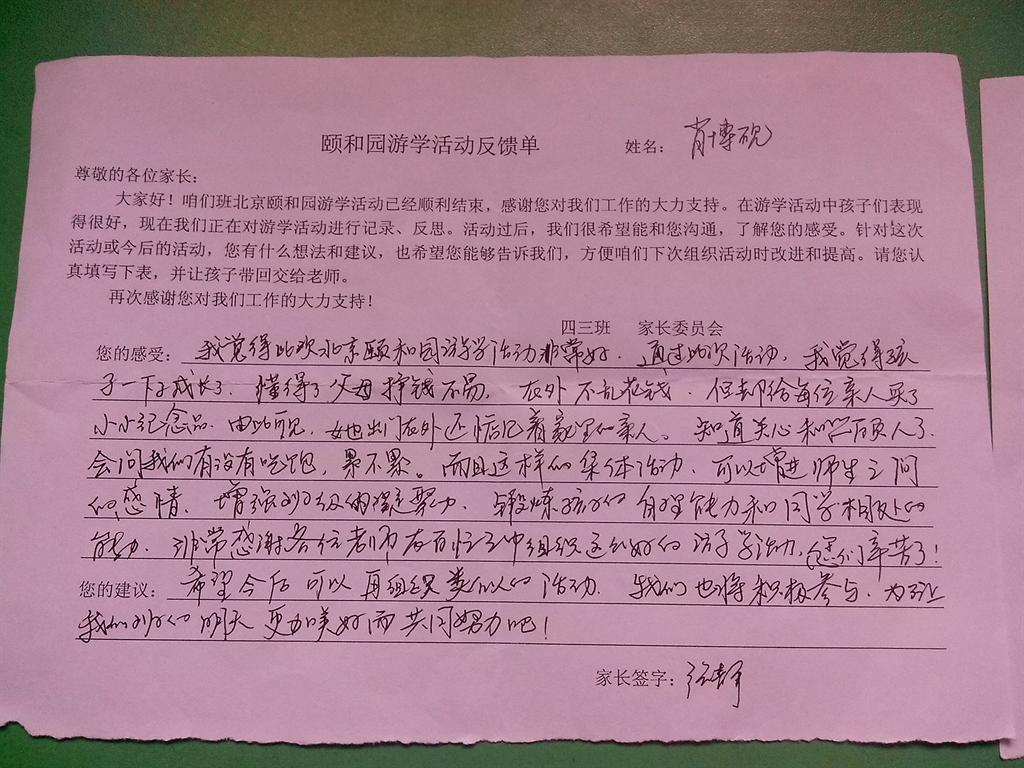 颐和园游学活动反馈单 姓名：肖博砚
尊敬的各位家长：
大家好！咱们班北京颐和园游学活动已经顺利结束，感谢您对我们工作的大力支持。在游学活动中孩子们表现
得很好，现在我们正在对游学活动进行记录、反思。活动过后，我们很希望能和您沟通，了解您的感受。针对这次
活动或今后的活动，您有什么想法和建议，也希望您能够告诉我们，方便咱们下次组织活动时改进和提高。请您认
真填写下表，并让孩子带回交给老师。
再次感谢您对我们工作的大力支持！
四三班 家长委员会
您的感受：我觉得此次北京颐和园游学活动非常好．通过此次活动，我觉得孩
子一下子成长了．懂得了父母挣钱不易．在外不乱花钱．但却给每位亲人买了
小小纪念品．由此可见，她出门在外还惦记着家里的亲人。知道关心和照顾人了．
会问我们有没有吃饱，累不累。而且这样的集体活动．可以增进师生之间
的感情．增强班级的凝聚力．锻炼孩子的自理能力和同学相处的
能力．非常感谢各位老师在百忙之中组织这么好的游学活动，您们辛苦了！
您的建议：希望今后可以再组织类似的活动．我们也将积极参与．为了让
我们班的明天更加美好而共同努力吧！
家长签字：